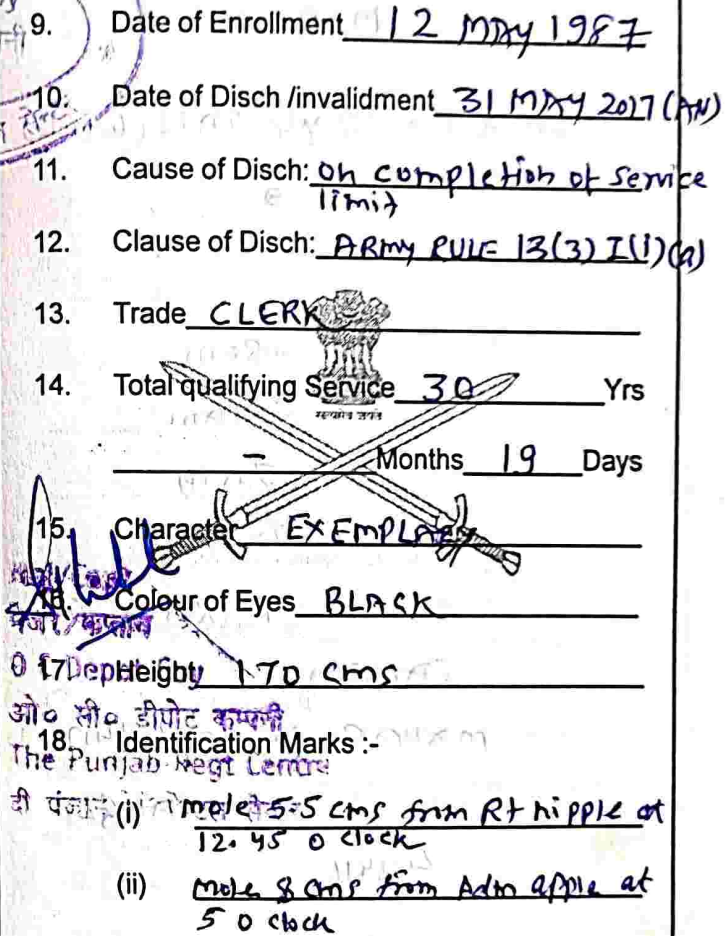 9. Date of Enrollment 12 MAY 1987
10. Date of Disch /invalidment 31 MAY 2017 (AN)
11. Cause of Disch: on completion of service
limit
12. Clause of Disch: ARMY RULE 13(3) I(i)(a)
13. Trade CLERK
सत्यमेव जयते
14. Total qualifying Service 30 Yrs
- Months 19 Days
15. Character EXEMPLARY
16. Colour of Eyes BLACK
17. Height 170 cms
ओ० सी० डीपोट कम्पनी
18. Identification Marks :-
The Punjab Regt Centre
दी पंजाब
(i) mole 5.5 cms from Rt nipple at
12.45 o clock
(ii) mole 8 cms from Adm apple at
5 o clock